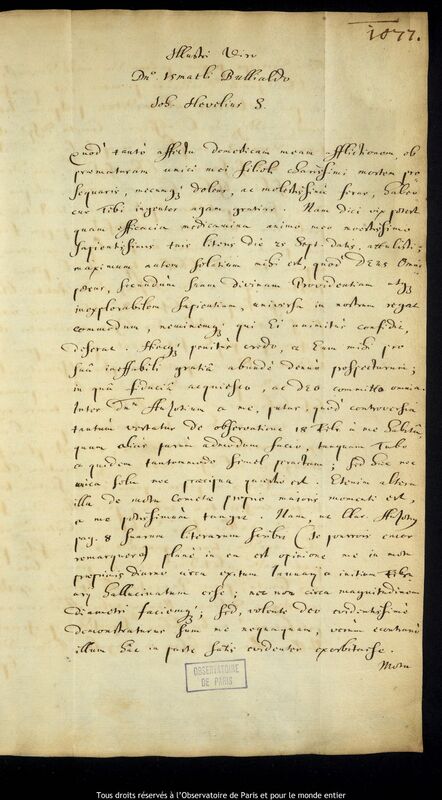 1877.
Illustri Viro
Dno Ismaeli Bullialdo
Joh. Hevelius S.
Quod tanto affectu domesticam meam afflictionem, ob
præmaturam unici mei filioli charissimi mortem pro
sequaris, mecumq; doleas, ac molestissimè feras, habeo
cur Tibi ingentes agam gratias. Nam dici vix potest
quam efficacia medicamina animo meo moestissimo
sapientissimis tuis literis die 25 Sept. datis, attuleris:
maximum autem solatium mihi est, quod DEUS Omni
potens, secundum suam divinam Providentiam atq;
inexplorabilem sapientiam, universa in nostrum regat
commodum, neminemq; qui Ei unicè confidit,
deserat. Hocq; penitus credo, ac Eum mihi pro
suâ ineffabili gratiâ abundè denuò prospecturum;
in quâ fiduciâ acquiesco, ac DEO committo omnia.
Inter Dnum Auzotium ac me, putas, quod controversia
tantum versetur de observatione 18 Febr. à me habitâ,
quam alias parum admodum facio, tanquam Tubo
a quodam tantummodo semel peractam; sed hæc nec
unica sola nec præcipua quæstio est. Etenim altera
illa de motu Cometæ proprio majoris momenti est,
ac me potissimum tangit. Nam ut Clar. Auzotius
pag. 8 suarum literarum scribit (Je pourrois encor
remarquer) planè in ea est opinione me in motu
proprio diurno circa exitum January ac initium Febru
ary hallucinatum esse; nec non circa magnitudinem
diametri faciemq;; sed, volente Deo evidentissimè
demonstraturus sum me nequaquam, verùm
illum hac in parte satis evidenter exorbitasse.
Motu
OBSERVATOIRE
DE PARIS
Tous droits réservés à l'Observatoire de Paris et pour le monde entier